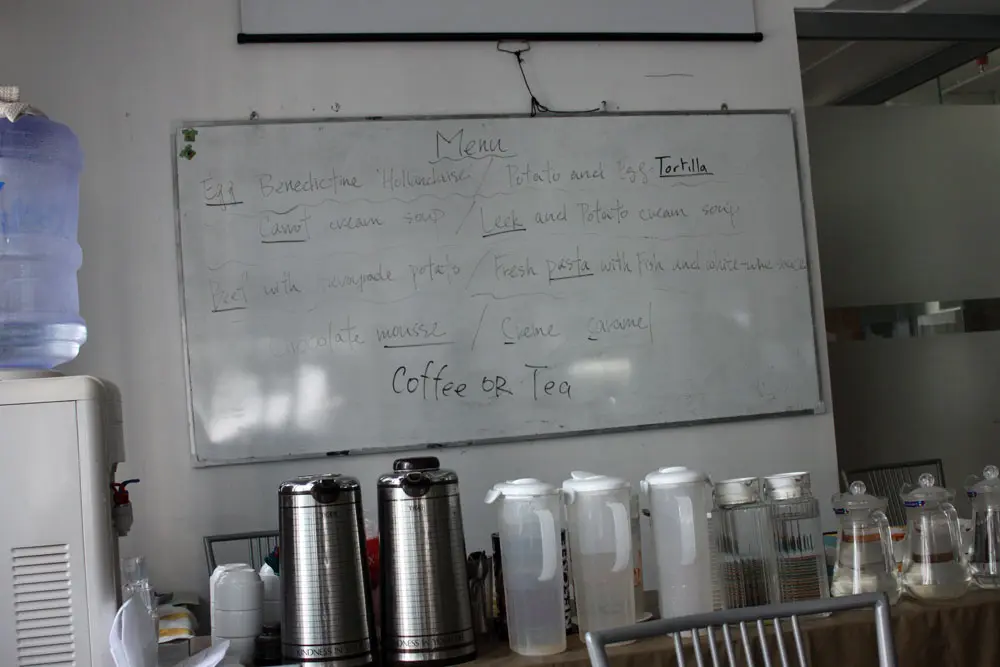 Menu
Egg Benedictine Hollandaise / Potato and Egg Tortilla
Carrot cream soup / Leek and Potato cream soup
Beef with potato / Fresh pasta with Fish and white-wine sauce
Chocolate mousse / Creme caramel
Coffee OR Tea